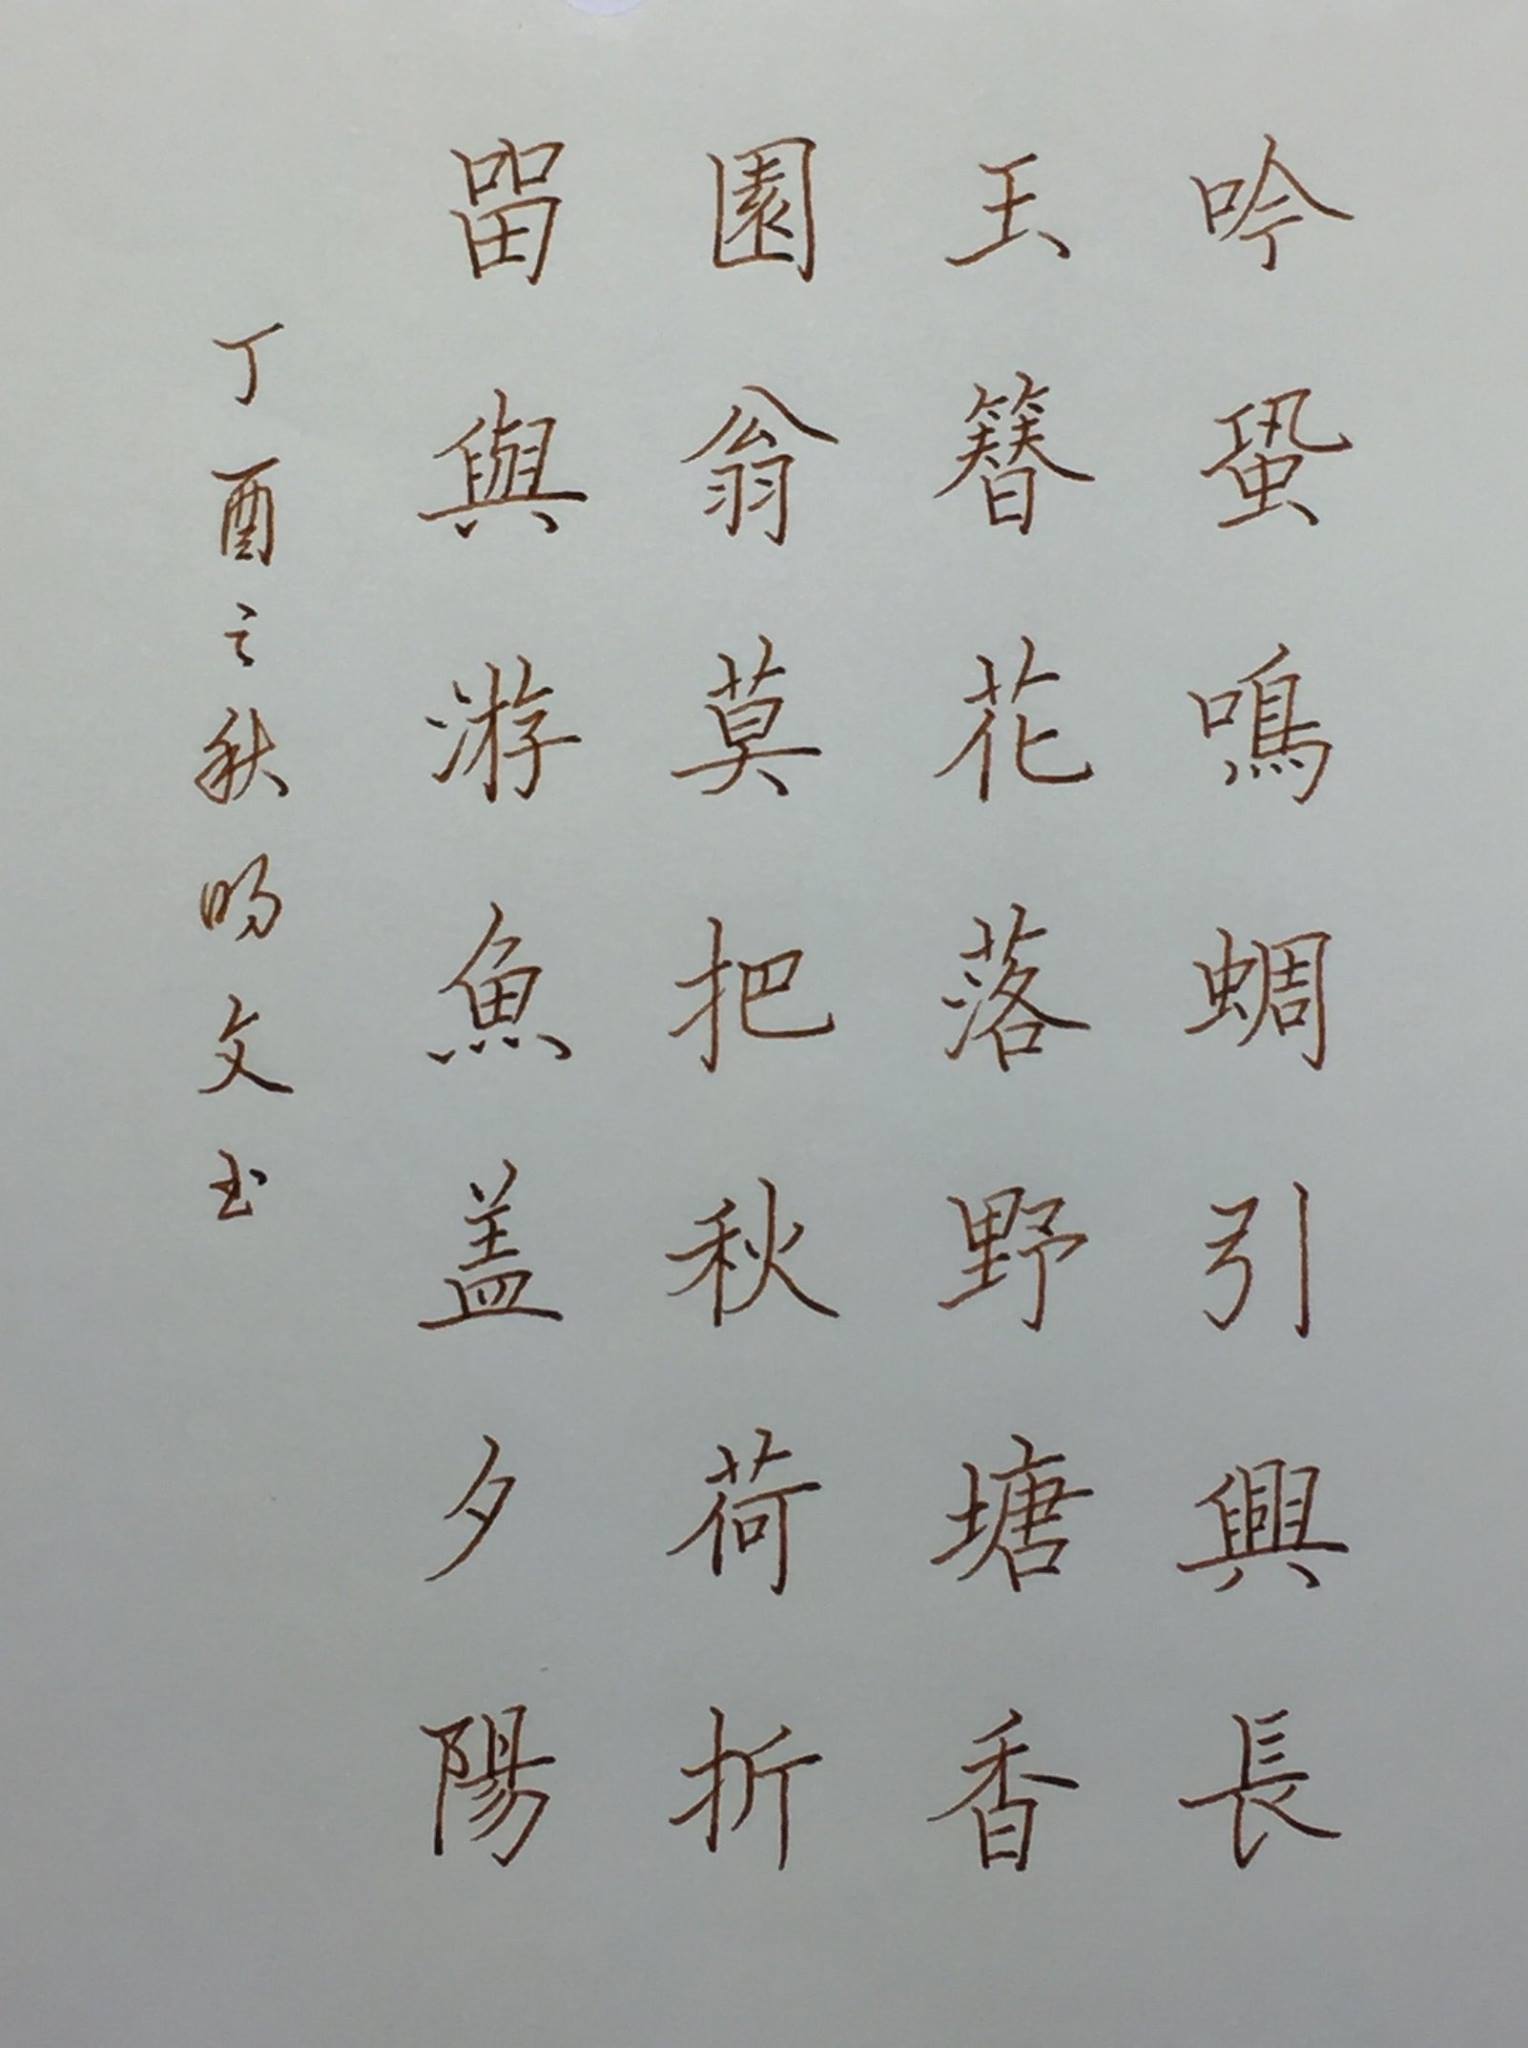 吟蛩鳴蜩引興長
玉簪花落野塘香
園翁莫把秋荷折
畱與游魚盖夕陽
丁酉之秋旸文书